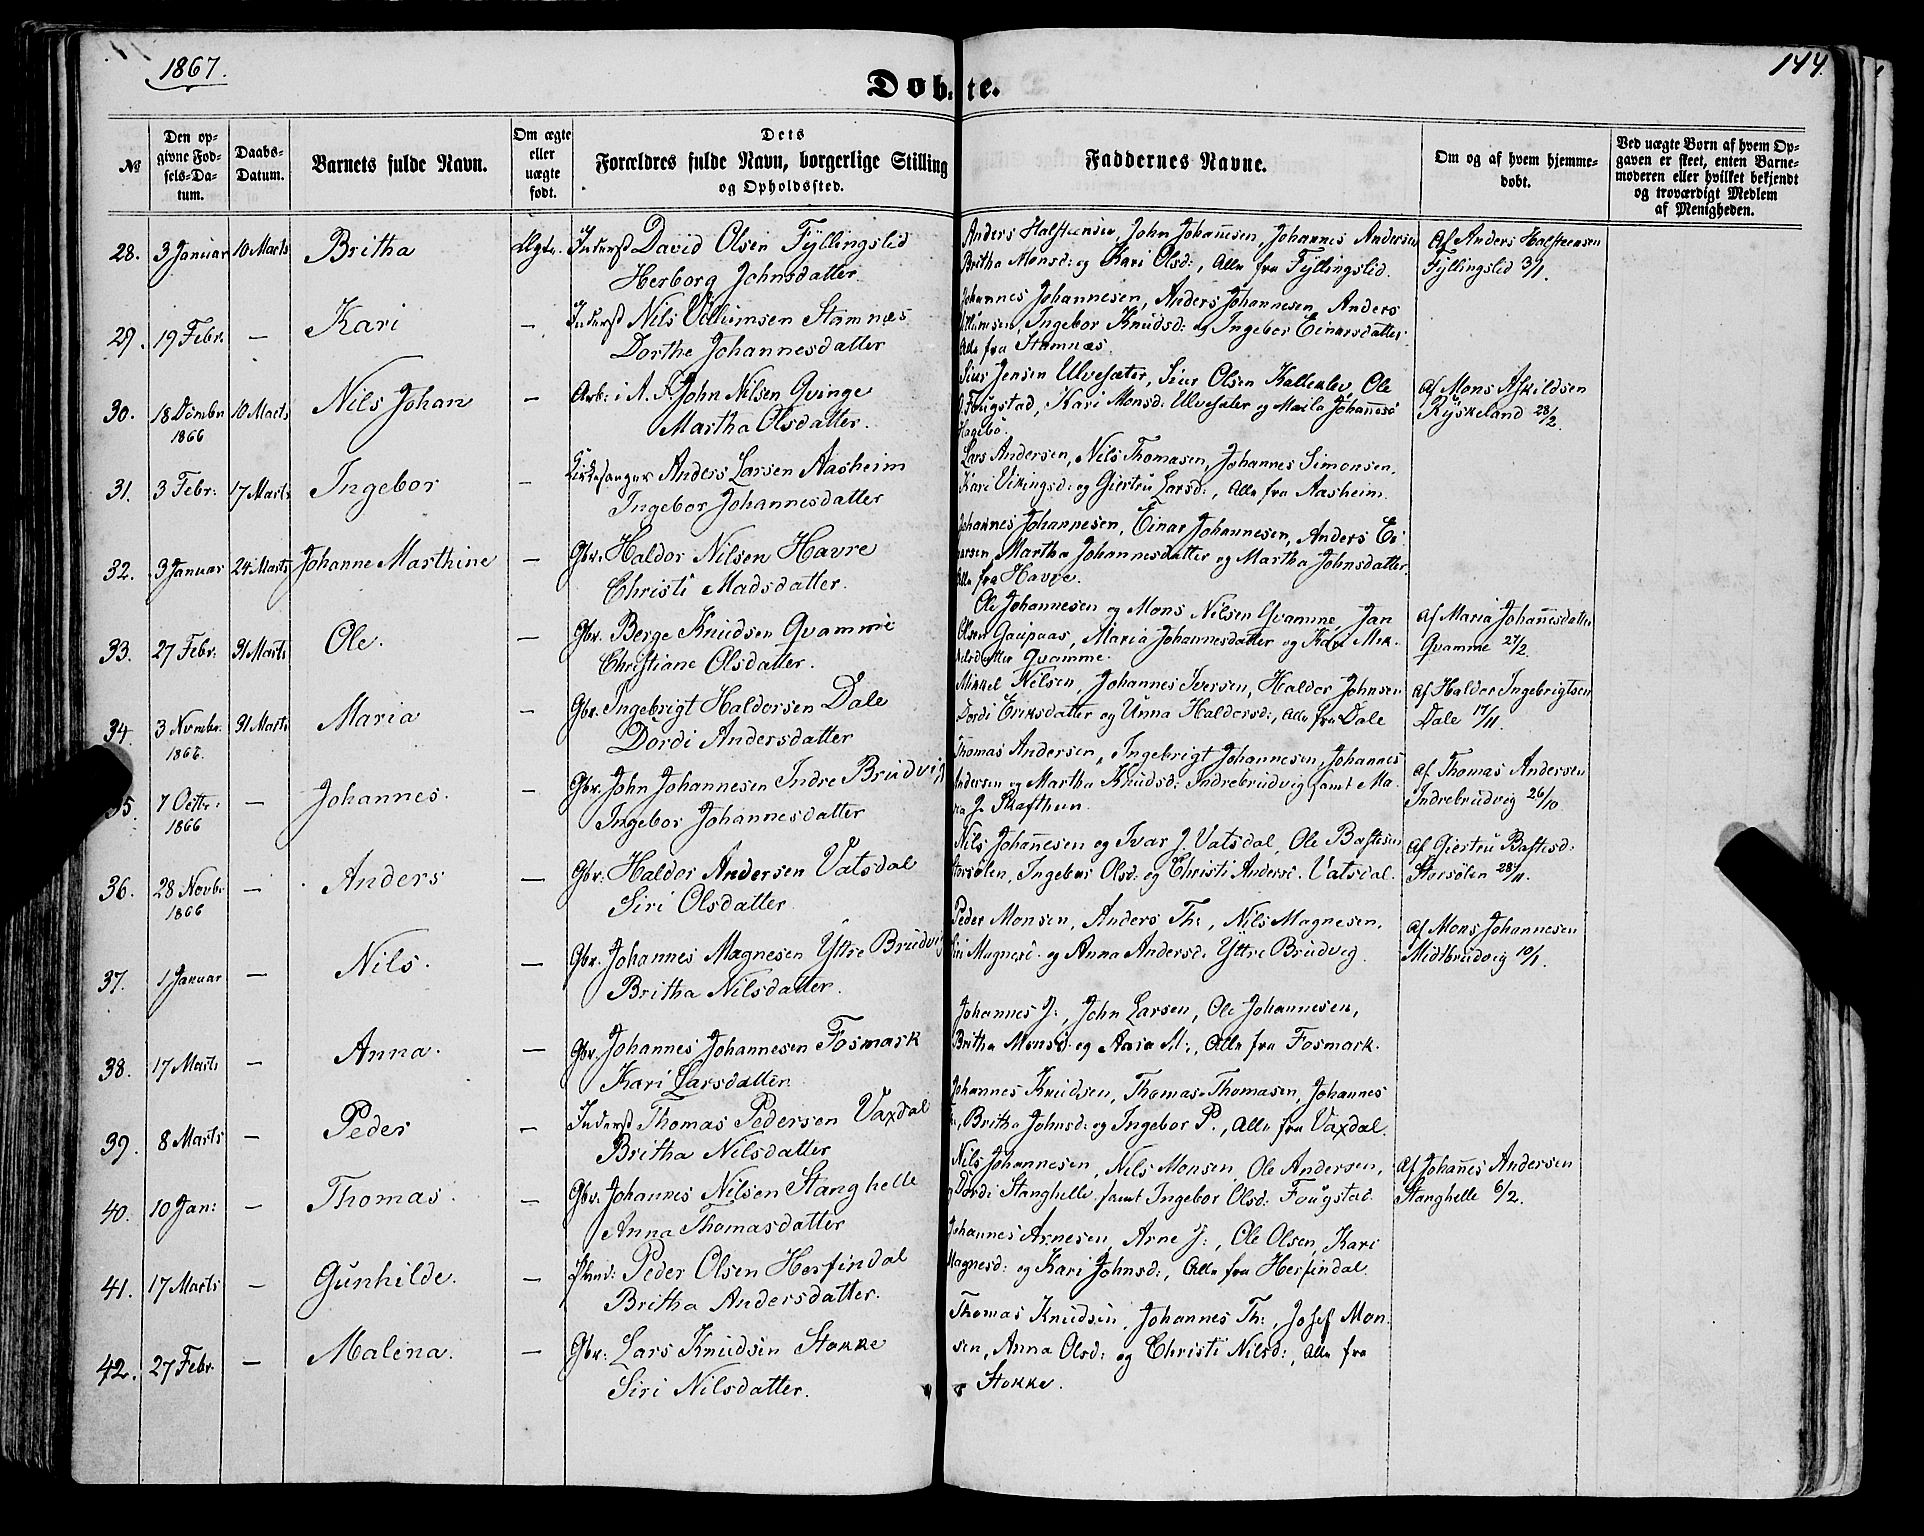 1867.
144.
Døbte.
№
Den opgivne Fødsels-Datum.
Daabs-Datum.
Barnets fulde Navn.
Om ægte eller uægte født.
Dets Forældres fulde Navn, borgerlige Stilling og Opholdssted.
Faddernes Navne.
Om og af hvem hjemmedøbt.
Ved uægte Børn af hvem Opgaven er skeet, enten Barnemoderen eller hvilket bekjendt og troværdigt Medlem af Menigheden.
28. 3 Januar 10 Marts Britha Ægte. Inderst David Olsen Fyllingslid
Herborg Johnsdatter.
Anders Halsteensen, John Johannesen, Johannes Andersen
Britha Monsd: og Kari Olsd:, Alle fra Fyllingslid.
Af Anders Halsteensen
Fyllingslid 3/1.
29. 19 Febr. — Kari — Inderst Nils Villumsen Stamnæs
Dorthe Johannesdatter
Johannes Johannesen, Anders Johannesen, Anders
Villumsen, Ingebor Knudsd: og Ingebor Einarsdatter.
Alle fra Stamnæs.
30. 18 Decmbr 1866 10 Marts Nils Johan — Arb: i A. F. John Nilsen Qvinge
Martha Olsdatter.
Siur Jensen Ulvesæter, Siur Olsen Kallekley, Ole
Fougstad, Kari Monsd: Ulvesæter og
Hagebø.
Af Mons Askildsen
Ryskeland 28/2.
31. 3 Febr: 17 Marts Ingebor — Kirkesanger Anders Larsen Aasheim
Ingebor Johannesdatter
Lars Andersen, Nils Thomasen, Johannes Simonsen,
Kari Vikingsd: og Giertru Larsd:, Alle fra Aasheim.
32. 3 Januar 24 Marts Johanne Marthine — Gbr. Haldor Nilsen Havre
Christi Madsdatter.
Johannes Johannesen, Einar Johannesen, Anders Ei-
narsen, Martha Johannesdatter og Martha Johnsdatter.
Alle fra Havre.
33. 27 Febr: 31 Marts Ole. — Gbr. Berge Knudsen Qvamme
Christiane Olsdatter.
Ole Johannesen og Mons Nilsen Qvamme, Jan
Olsen Gaupaas, Maria Johannesdatter og Kari Mik-
kelsdatter Qvamme.
Af Maria Johannesdatter
Qvamme 27/2.
34. 3 Novmbr. 31 Marts Maria — Gbr. Ingebrigt Haldorsen Dale
Dordi Andersdatter
Mikkel Nilsen, Johannes Iversen, Haldor Johnsen
Dordi Eriksdatter og Unna Haldorsd:, Alle fra Dale
Af Haldor Ingebrigtsen
Dale 17/11.
35. 7 Octbr: 1866 — Johannes. — Gbr. John Johannesen Indre Brudvig
Ingebor Johannesdatter
Thomas Andersen, Ingebrigt Johannesen, Johannes
Andersen og Martha Knudsd: Indrebrudvig samt Ma-
ria J. Skafthun.
Af Thomas Andersen
Indrebrudvig 26/10
36. 28 Novbr 1866 — Anders — Gbr. Haldor Andersen Vatsdal
Siri Olsdatter.
Nils Johannesen og Ivar J. Vatsdal, Ole Baftesen
Storsølen, Ingebor Olsd: og Christi Andersd. Vatsdal.
Af Giertru Baftesd:
Storsølen 28/11.
37. 1 Januar — Nils. — Gbr. Johannes Magnesen Yttre Brudvig
Britha Nilsdatter.
Peder Monsen, Anders Th:, Nils Magnesen,
Siri Magnesd. og Anna Andersd: Yttre Brudvig.
Af Mons Johannesen
Midtbrudvig 10/1.
38. 17 Marts — Anna. — Gbr. Johannes Johannesen Fosmark
Kari Larsdatter
Johannes J:, John Larsen, Ole Johannesen,
Britha Monsd. og Aasa M:, Alle fra Fosmark.
39. 8 Marts — Peder — Inderst Thomas Pedersen Vaxdal
Britha Nilsdatter
Johannes Knudsen, Thomas Thomasen, Johannes
Britha Johnsd: og Ingebor P., Alle fra Vaxdal.
40. 10 Jan: — Thomas. — Gbr. Johannes Nilsen Stanghelle
Anna Thomasdatter
Nils Johannesen, Nils Monsen, Ole Andersen,
og Dordi Stanghelle, samt Ingebor Olsd: Fougstad.
Af Johannes Andersen
Stanghelle 6/2.
41. 17 Marts — Gunhilde. — Peder Olsen Herfindal
Britha Andersdatter.
Johannes Arnesen, Arne J:, Ole Olsen, Kari
Magnesd: og Kari Johnsd:, Alle fra Herfindal.
42. 27 Febr. — Malena. — Gbr: Lars Knudsen Stokke
Siri Nilsdatter.
Thomas Knudsen, Johannes Th:, Josef Mon-
sen, Anna Olsd: og Christi Nilsd:, Alle fra
Stokke.